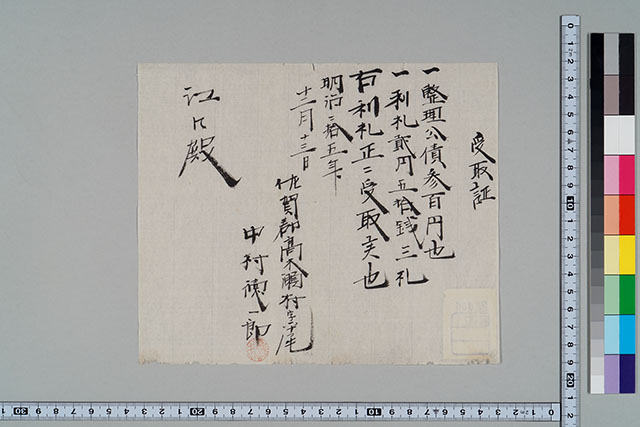 受取証
一整理公債参百円也
一利札貳円五拾銭三札
右利札正ニ受取候也
明治二拾五年
十二月十三日
佐賀郡高木瀬村
中村 一郎
江口殿